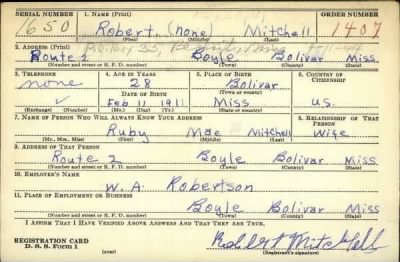 SERIAL NUMBER 1. NAME (Print) ORDER NUMBER
1650 Robert (none) Mitchell 1407
(First) (Middle) (Last)
3. ADDRESS (Print)
Route 2 Boyle Bolivar Miss.
(Number and street or R. F. D. number) (Town) (County) (State)
3. TELEPHONE 4. AGE IN YEARS 5. PLACE OF BIRTH 6. COUNTRY OF CITIZENSHIP
none 28 Bolivar
DATE OF BIRTH (Town or county)
Feb 11 1911 Miss U.S.
(Exchange) (Number) (Mo.) (Day) (Yr.) (State or country)
7. NAME OF PERSON WHO WILL ALWAYS KNOW YOUR ADDRESS 8. RELATIONSHIP OF THAT PERSON
Ruby Mae Mitchell Wife
(Mr., Mrs., Miss) (First) (Middle) (Last)
9. ADDRESS OF THAT PERSON
Route 2 Boyle Bolivar Miss
(Number and street or R. F. D. number) (Town) (County) (State)
10. EMPLOYER'S NAME
W. A. Robertson
11. PLACE OF EMPLOYMENT OR BUSINESS
Boyle Bolivar Miss
(Number and street or R. F. D. number) (Town) (County) (State)
I AFFIRM THAT I HAVE VERIFIED ABOVE ANSWERS AND THAT THEY ARE TRUE.
REGISTRATION CARD
D. S. S. FORM 1 (over) Robert Mitchell
(Registrant's signature)